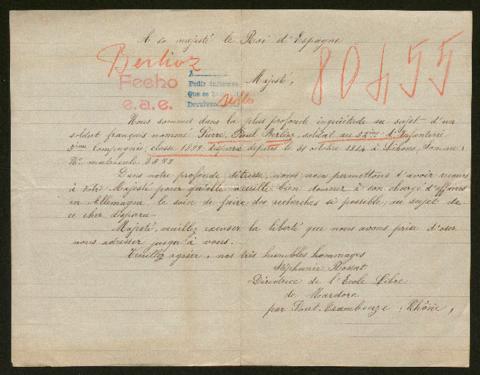 A sa majesté le Roi d'Espagne
Berlioz
80455
Fecho
e.a.e.
Pedir informes
Majesté,
Nous sommes dans la plus profonde inquiétude au sujet d'un
soldat français nommé Pierre, Paul Berlioz, soldat au 52ème d'Infanterie
Compagnie, classe 1899 disparu depuis le 31 octobre 1914 à Lihons, Somme
No matricule
Dans notre profonde détresse, nous nous permettons d'avoir recours
à votre Majesté pour qu'elle veuille bien donner à son chargé d'affaires
en Allemagne le soin de faire des recherches si possible, au sujet de
ce cher disparu.
Majesté, veuillez excuser la liberté que nous avons prise d'oser
nous adresser jusqu'à vous.
Veuillez agréer, nos très humbles hommages
Stéphanie
Directrice de l'Ecole Libre
de Mardore
par Pont-Trambouze, Rhône,